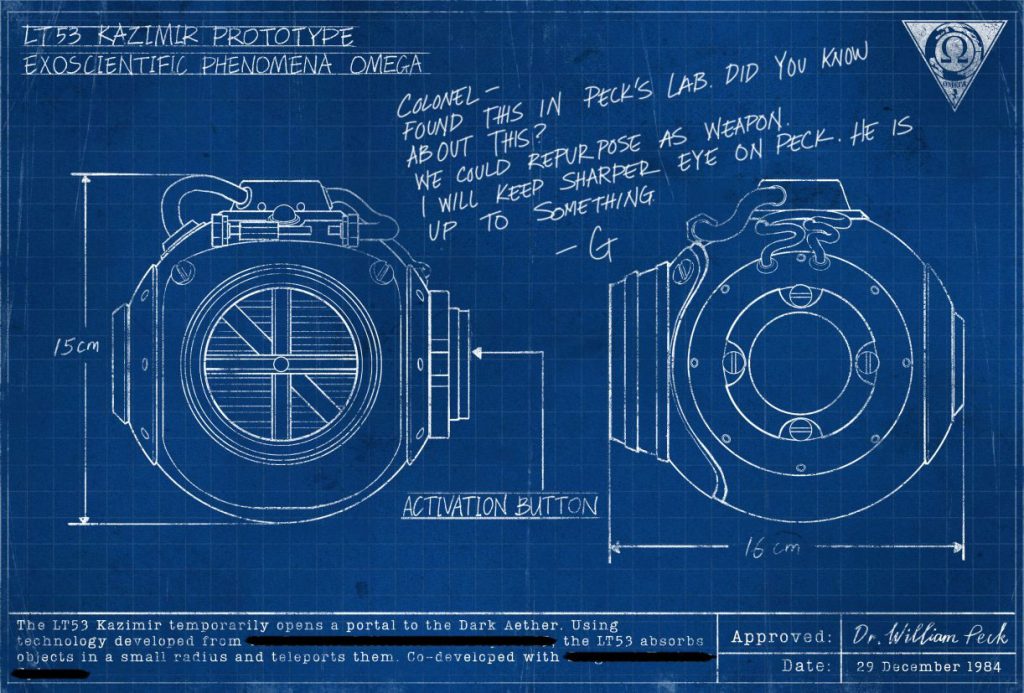 LT53 KAZIMIR PROTOTYPE
EXOSCIENTIFIC PHENOMENA OMEGA
COLONEL –
FOUND THIS IN PECK'S LAB. DID YOU KNOW
ABOUT THIS?
WE COULD REPURPOSE AS WEAPON.
I WILL KEEP SHARPER EYE ON PECK. HE IS
UP TO SOMETHING
– G
Ω
OMEGA
15cm
ACTIVATION BUTTON
16 cm
The LT53 Kazimir temporarily opens a portal to the Dark Aether. Using
technology developed from the LT53 absorbs
objects in a small radius and teleports them. Co-developed with
Approved: Dr. William Peck
Date: 29 December 1984